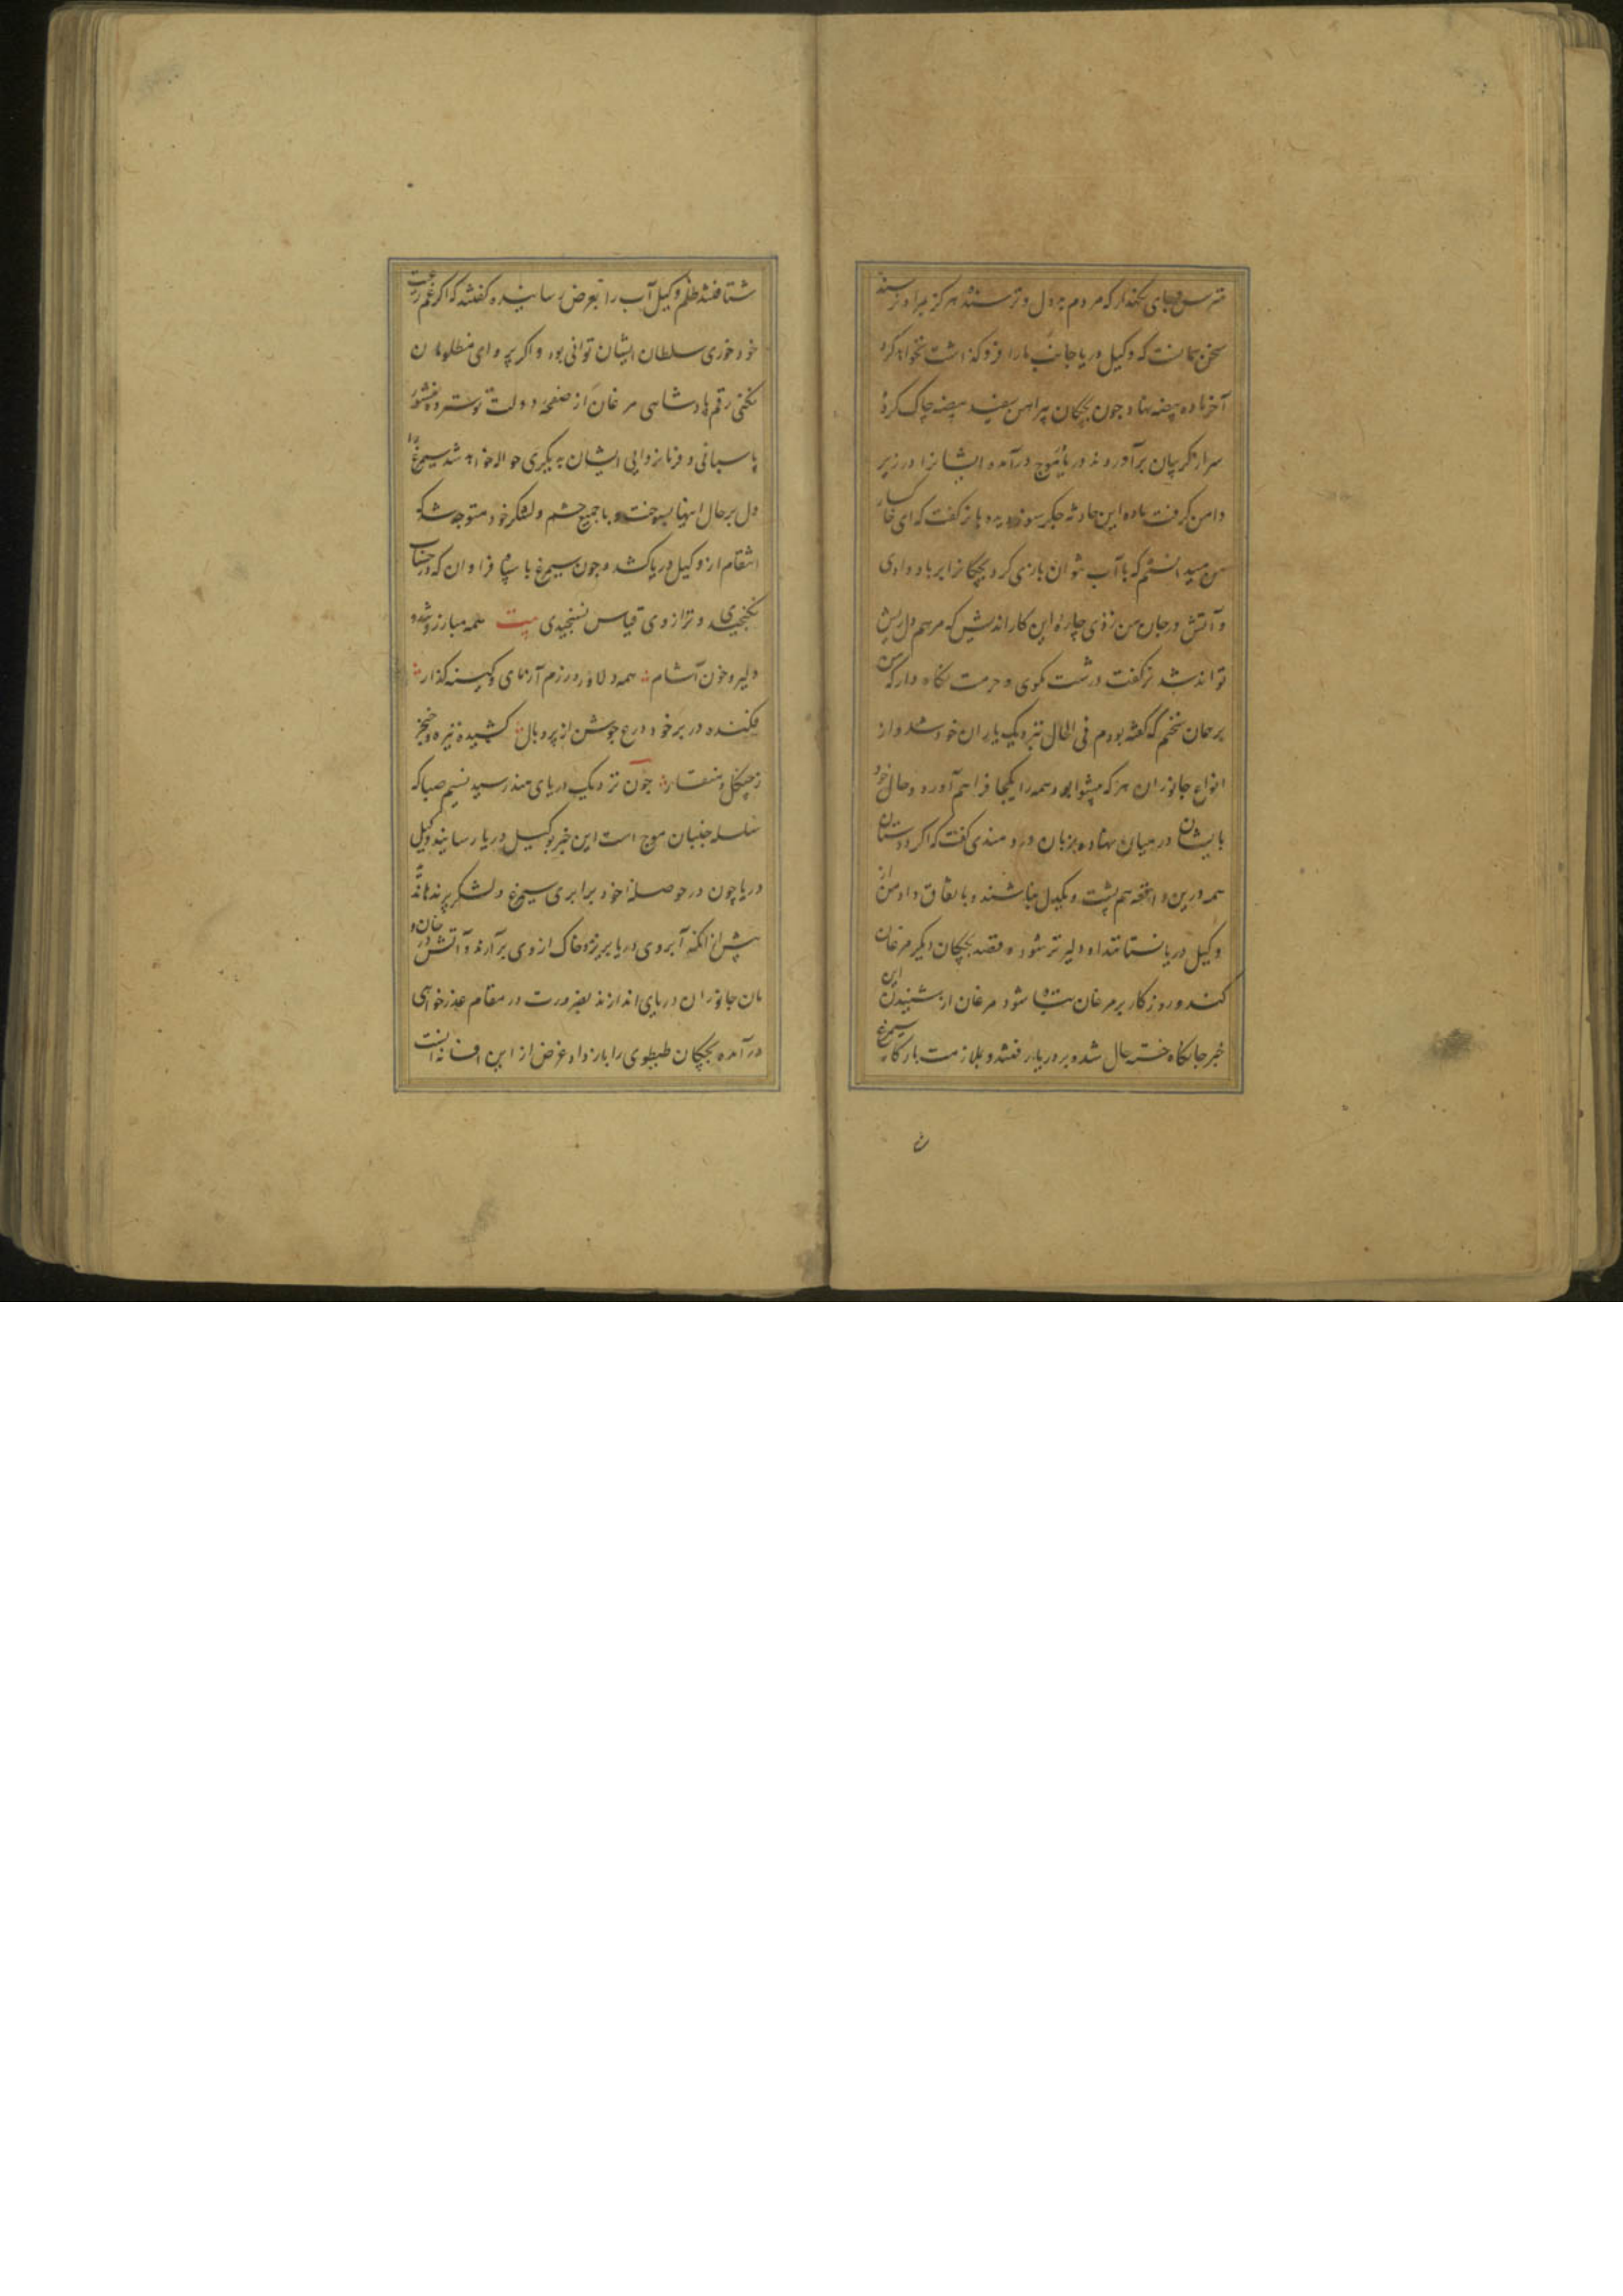 مترس و جای نگهدار که مردم بد دل و ترسنده هرگز بمراد نرسند
سخن همانست که وکیل دریا جانب ما را فرو گذاشت نخواهد کرد
آخر ماده بیضه نهاد چون بچگان پیراهن سفید بیضه چاک کرده
سر از گریبان برآوردند دریا بموج درآمده ایشانرا در زیر
دامن گرفت ماده این حادثه جگرسوز دیده با نر گفت که ای خاکسار
من میدانستم که با آب نتوان بازی کرد بچگانرا بر باد دادی
و آتش در جان من زدی چاره این کار اندیش که مرهم دل ریش
تواند شد نر گفت درشت مگوی و حرمت نگاه دار که من
بر همان سخنم که گفته بودم فی الحال نزدیک یاران خود شد و از
انواع جانوران هر که پیشوا بود همه را یکجا فراهم آورد و حال خود
بایشان در میان نهاده بزبان دردمندی گفت که اگر دوستان
همه درین واقعه هم پشت و یکدل نباشند و باتفاق داد من از
وکیل دریا نستانند او دلیرتر شود و قصد بچگان دیگر مرغان
کند و روزگار بر مرغان تباه شود مرغان از شنیدن این
خبر جانکاه خسته حال شده بر در یار رفتند و بملازمت بارگاه سیمرغ
شتافتند ظلم وکیل آب را بعرض رسانیده گفتند که اگر غم رعیت
خود خوری سلطان ایشان توانی بود و اگر پروای مظلومان
نکنی رقم پادشاهی مرغان از صفحه دولت تو سترده منشور
پاسبانی و فرمانروایی ایشان بدیگری حواله خواهد شد سیمرغ را
دل بر حال اینها بسوخت و با جمیع حشم و لشکر خود متوجه شد که
انتقام از وکیل دریا کشد و چون سیمرغ با سپاه فراوان که در حساب
نگنجیدی و ترازوی قیاس نسنجیدی بیت همه مبارز و تند و
دلیر و خون آشام همه دلاور و رزم آزمای و کینه گذار
فکنده در بر خود درع جوشن از پر و بال کشیده نیزه و خنجر
ز چنگل و منقار چون نزدیک دریای هند رسید نسیم صبا که
سلسله جنبان موج است این خبر بوکیل دریا رسانید وکیل
دریا چون در حوصله خود برابری سیمرغ و لشکر پرندها ندید
پیش از انکه آبروی دریا بریزد و خاک از وی برآرند و آتش در خان و
مان جانوران دریای اندازند بضرورت در مقام عذرخواهی
درآمده بچگان طیطوی را باز داد غرض از این افسانه آنست